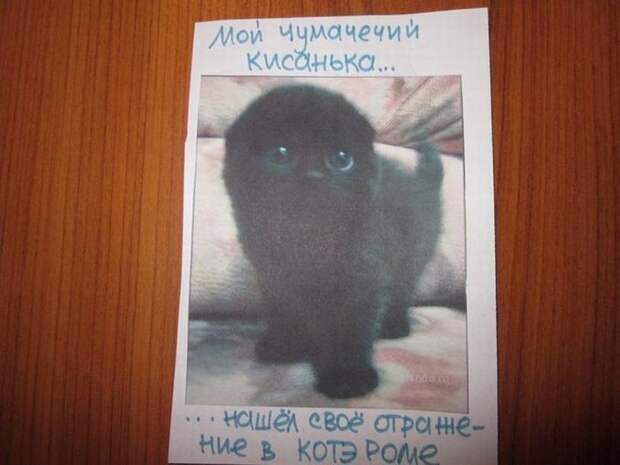 Мой чумачечий
кисанька...
...нашёл своё отраже-
ние в котэ Роме